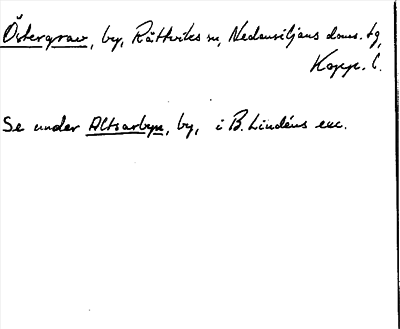 Östergrav, by, Rättviks sn, Nedansiljans doms. tg,
Kopp. l.
Se under Altsarbyn, by, i B. Lindéns exc.